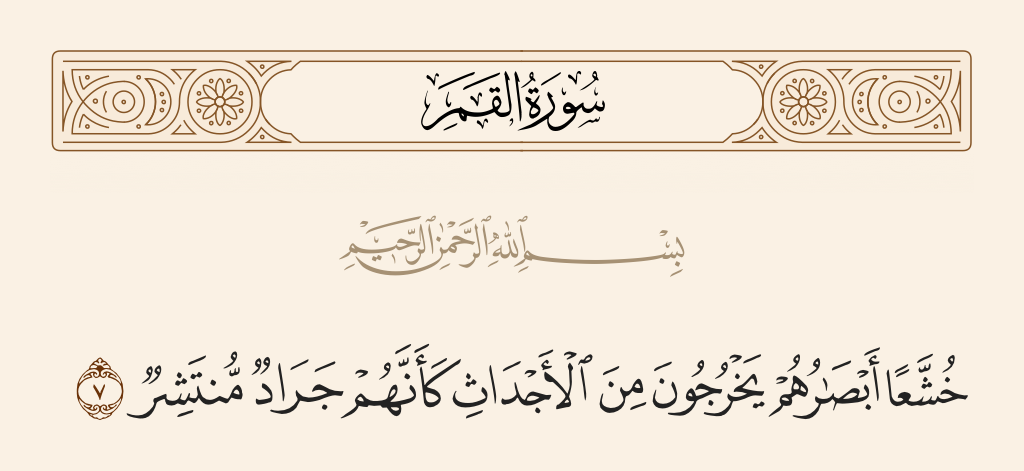 سُورَةُ القَمَرِ
بِسْمِ ٱللَّهِ ٱلرَّحْمَٰنِ ٱلرَّحِيمِ
خُشَّعًا أَبْصَٰرُهُمْ يَخْرُجُونَ مِنَ ٱلْأَجْدَاثِ كَأَنَّهُمْ جَرَادٌ مُّنتَشِرٌ ٧